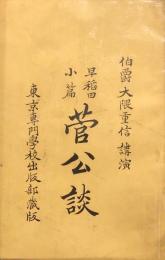 伯爵大隈重信講演
早稲田
小篇
菅公談
東京專門學校出版部藏版